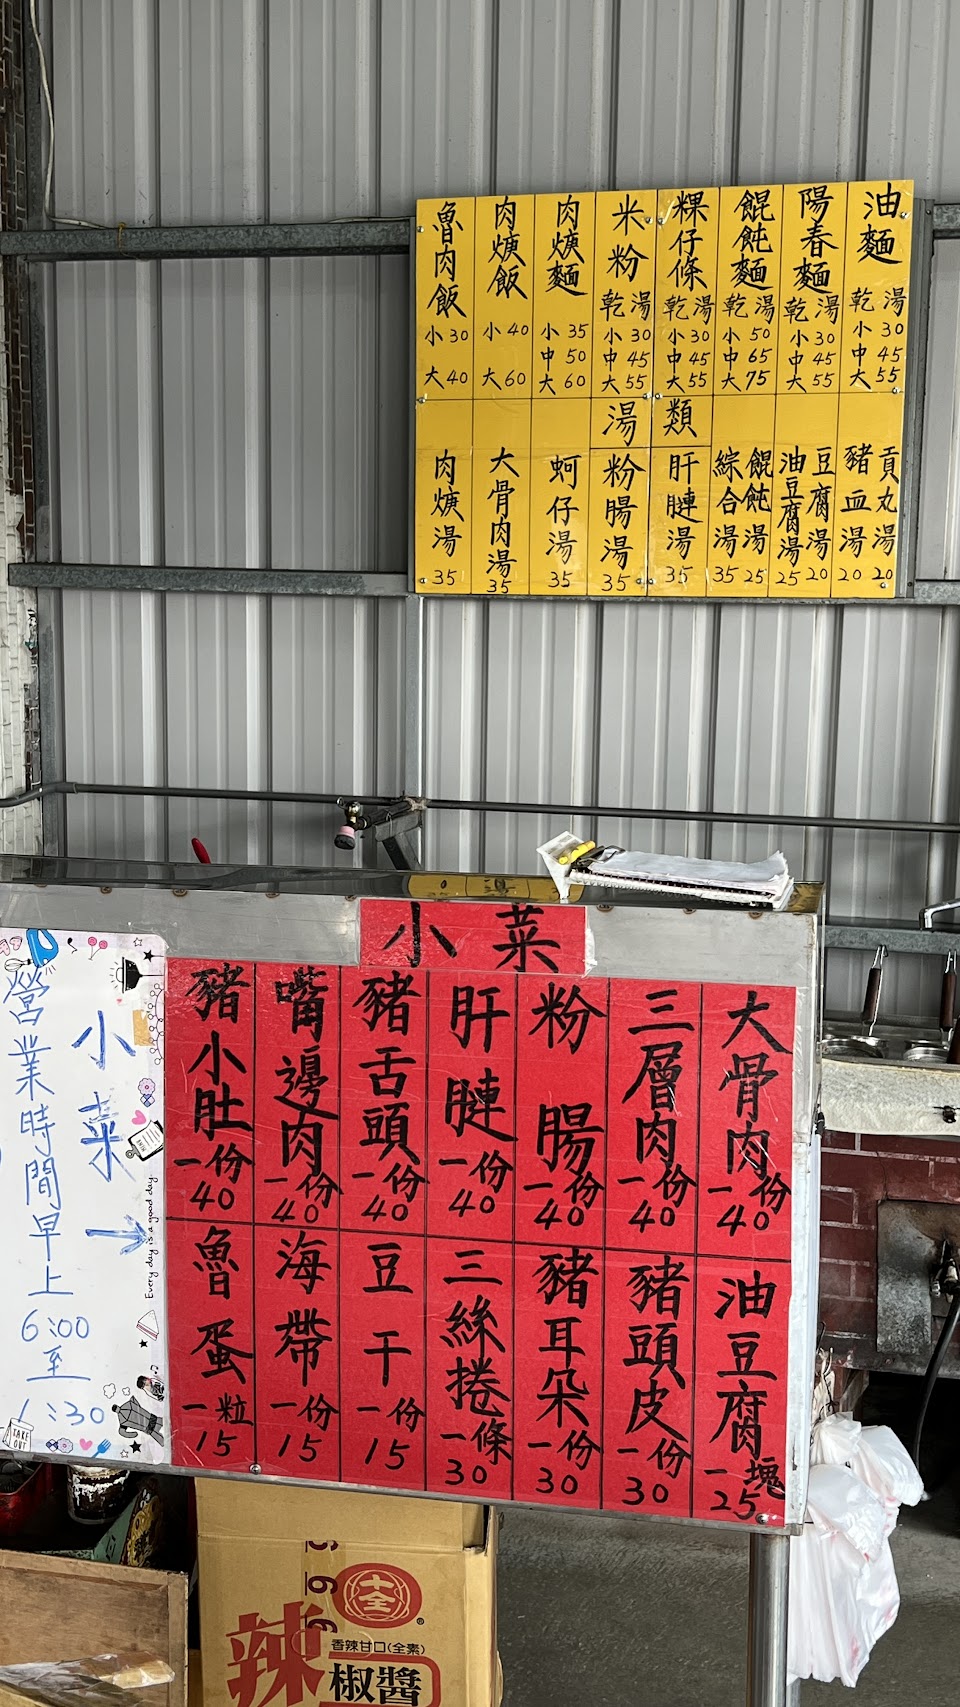 油麵 乾 湯 小30 中45 大55
陽春麵 乾 湯 小30 中45 大55
餛飩麵 乾 湯 小50 中65 大75
粿仔條 乾 湯 小30 中45 大55
米粉 乾 湯 小30 中45 大55
肉焿麵 小35 中50 大60
肉焿飯 小40 大60
魯肉飯 小30 大40
湯類
貢丸湯 20
豬血湯 20
豆腐湯 20
油豆腐湯 25
餛飩湯 25
綜合湯 35
肝腱湯 35
粉腸湯 35
蚵仔湯 35
大骨肉湯 35
肉焿湯 35
小菜
大骨肉 一份40
三層肉 一份40
粉腸 一份40
肝腱 一份40
豬舌頭 一份40
嘴邊肉 一份40
豬小肚 一份40
油豆腐 一塊25
豬頭皮 一份30
豬耳朵 一份30
三絲捲 一條30
豆干 一份15
海帶 一份15
魯蛋 一粒15
小菜→
營業時間早上
6:00
至
1:30
Every day is a good day
TAKE OUT
十全
®
香辣甘口(全素)
辣
椒醬